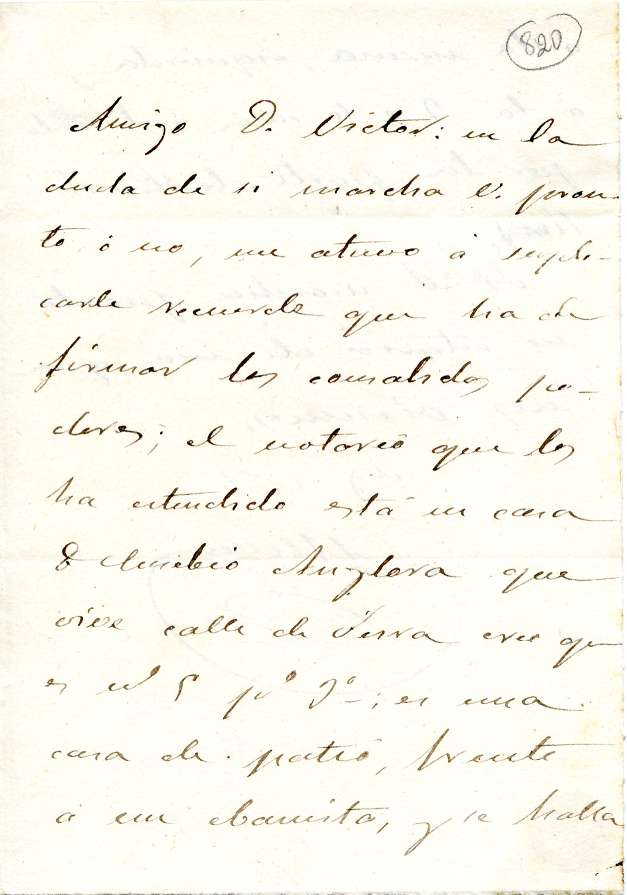 820
Amigo D. Victor: en la
duda de si marcha V. pron-
to ó no, me atrevo á supli-
carle recuerde que ha de
firmar los consabidos po-
deres; el notario que los
ha estendido está en casa
D Eusebio Anglora que
vive calle de Riera creo que
es nº 5 pº 3º; es una
casa de patio, frente
á un ebanista, y se halla